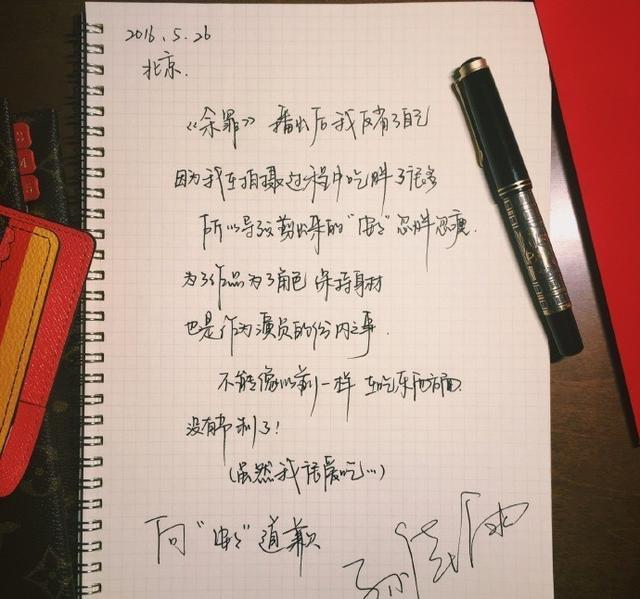 2016.5.26
北京.
《余罪》播出后我反省了自己
因为我在拍摄过程中吃胖了很多
所以导致剪出来的“鼠标”忽胖忽瘦.
为了作品为了角色保持身材
也是作为演员的份内之事.
不能像以前一样 在吃东西方面
没有节制了!
(虽然我很爱吃...)
向“鼠标”道歉